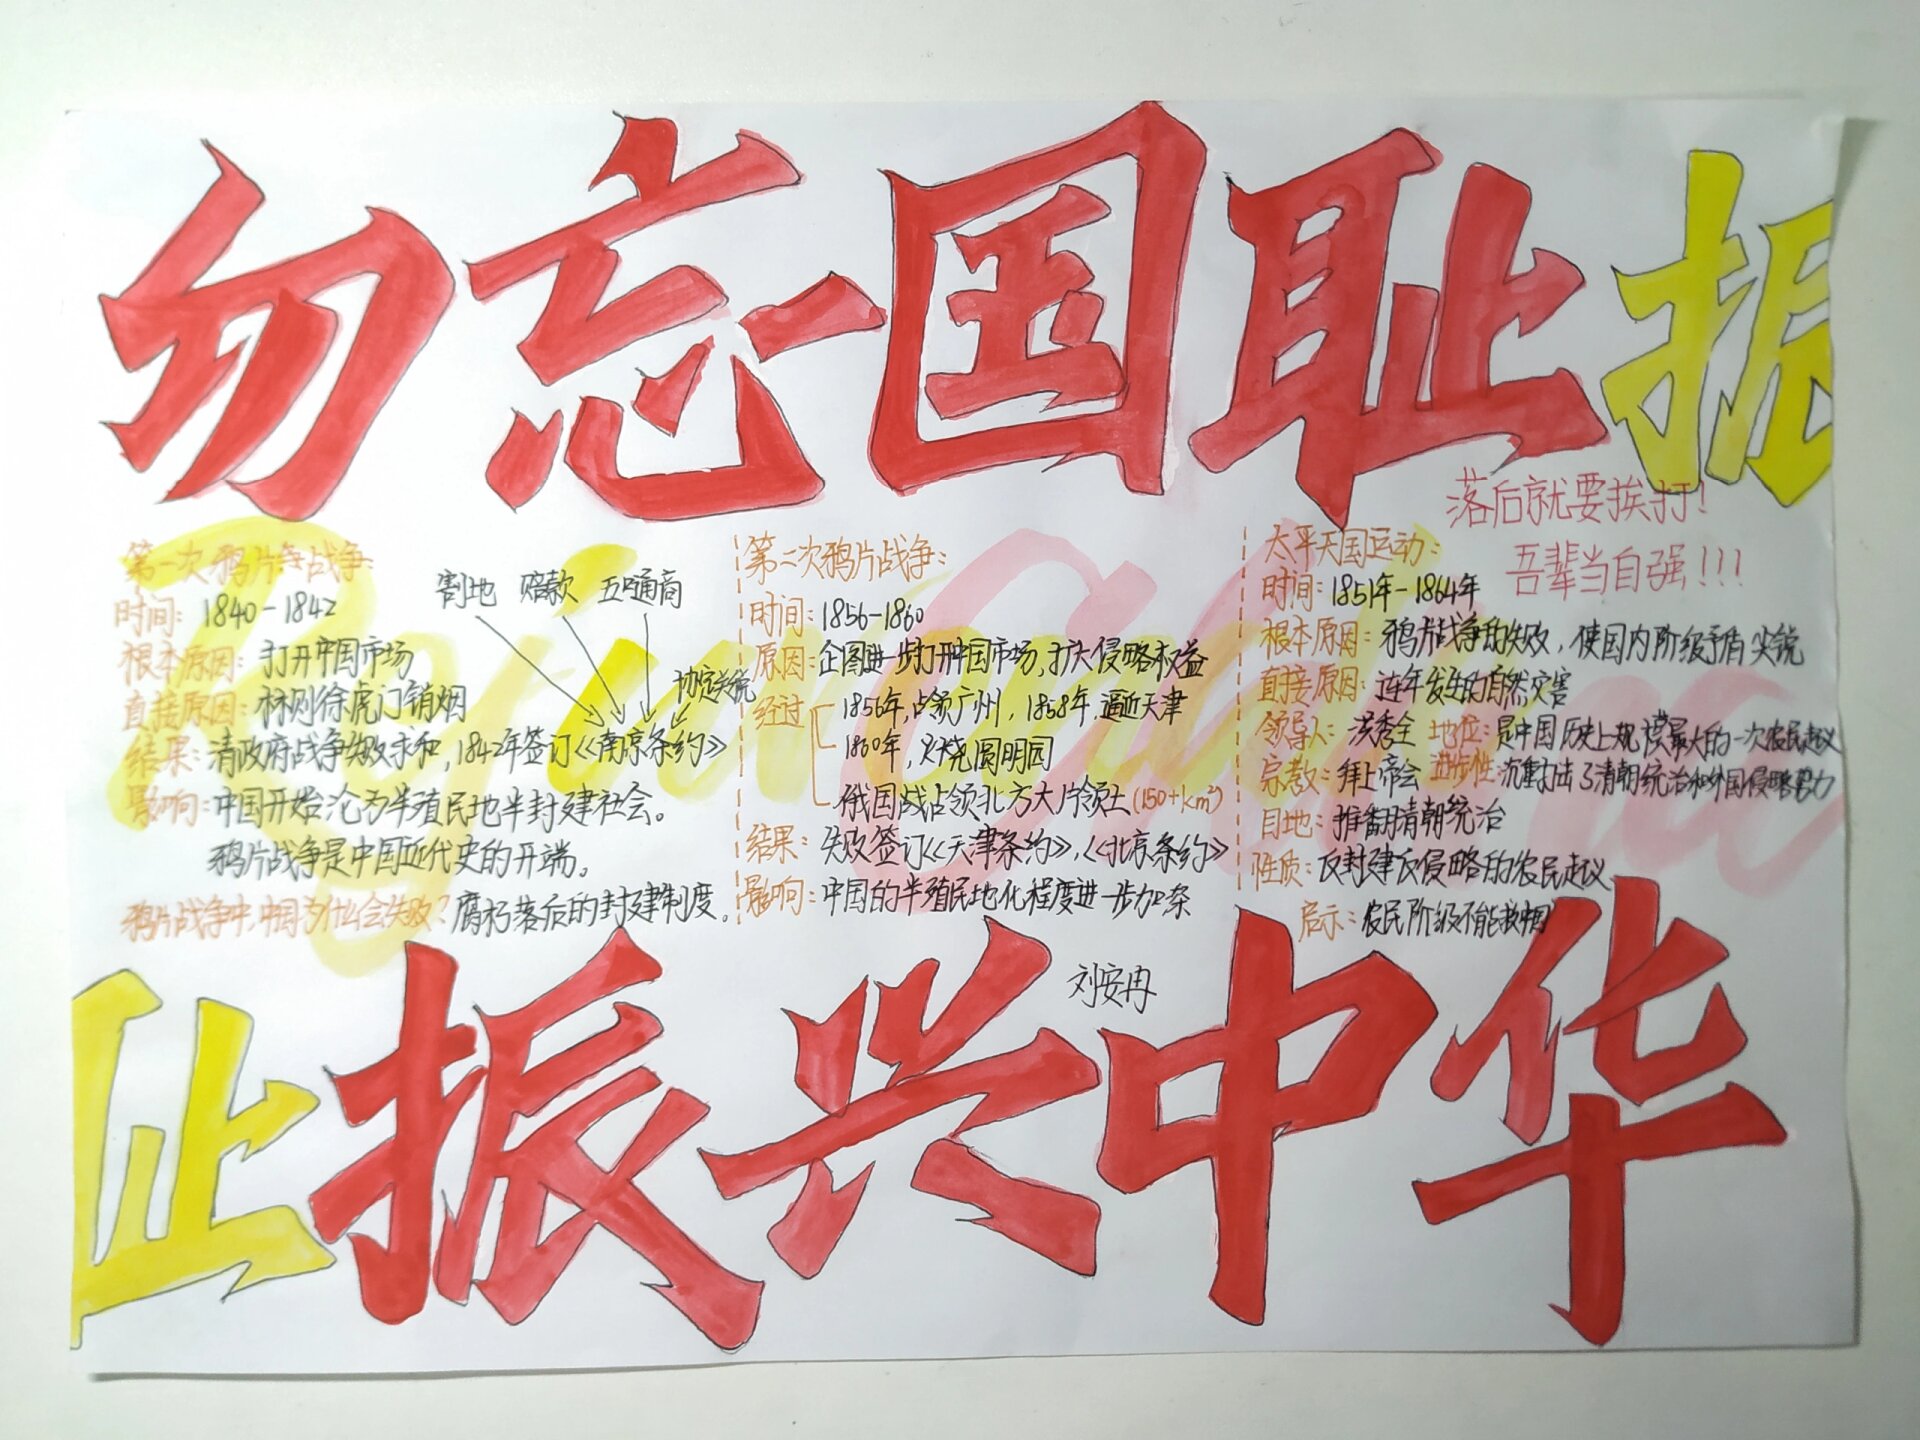 勿忘国耻振
落后就要挨打！
吾辈当自强！！！
第一次鸦片战争：
割地 赔款 五口通商
协定关税
时间：1840-1842
根本原因：打开中国市场
直接原因：林则徐虎门销烟
结果：清政府战争失败求和，1842年签订《南京条约》
影响：中国开始沦为半殖民地半封建社会。
鸦片战争是中国近代史的开端。
鸦片战争中，中国为什么会失败？腐朽落后的封建制度。
第二次鸦片战争：
时间：1856-1860
原因：企图进一步打开中国市场，扩大侵略权益
经过 1856年，占领广州，1858年，逼近天津
1860年，火烧圆明园
俄国战占领北方大片领土(150+km²)
结果：失败签订《天津条约》，《北京条约》
影响：中国的半殖民地化程度进一步加深
太平天国运动：
时间：1851年-1864年
根本原因：鸦片战争的失败，使国内阶级矛盾尖锐
直接原因：连年发生的自然灾害
领导人：洪秀全 地位：是中国历史上规模最大的一次农民起义
宗教：拜上帝会 进步性：沉重打击了清朝统治和外国侵略势力
目地：推翻清朝统治
性质：反封建反侵略的农民起义
启示：农民阶级不能救中国
刘安冉
耻振兴中华